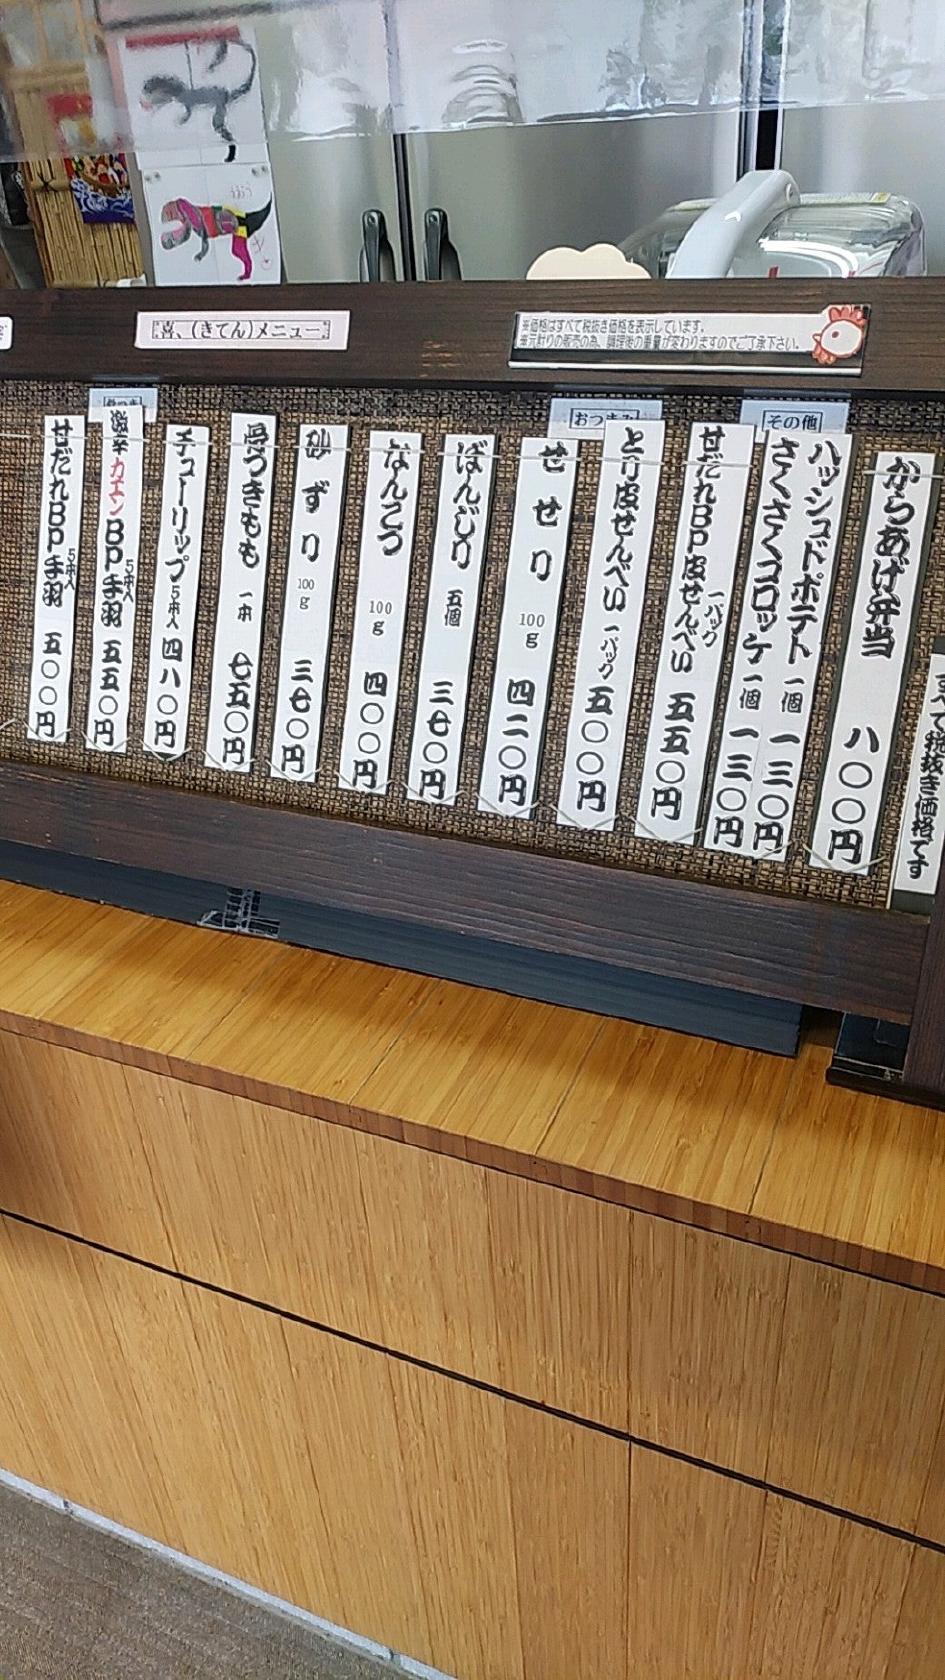 喜、(きてん)メニュー
※価格はすべて税抜き価格を表示しています。
※元計りの販売の為、調理後の重量が変わりますのでご了承下さい。
その他
からあげ弁当 八〇〇円
ハッシュドポテト 一個 一三〇円
さくさくコロッケ 一個 一三〇円
おつまみ
せだれBP皮せんべい 一パック 五五〇円
とり皮せんべい 一パック 五〇〇円
せせり 100g 四二〇円
ぼんじり 五個 三七〇円
なんこつ 100g 四〇〇円
砂ずり 100g 三七〇円
骨つきもも 一本 七五〇円
チューリップ 5本入 四八〇円
激辛カエンBP手羽 5本入 五五〇円
せだれBP手羽 5本入 五〇〇円
て税抜き価格です